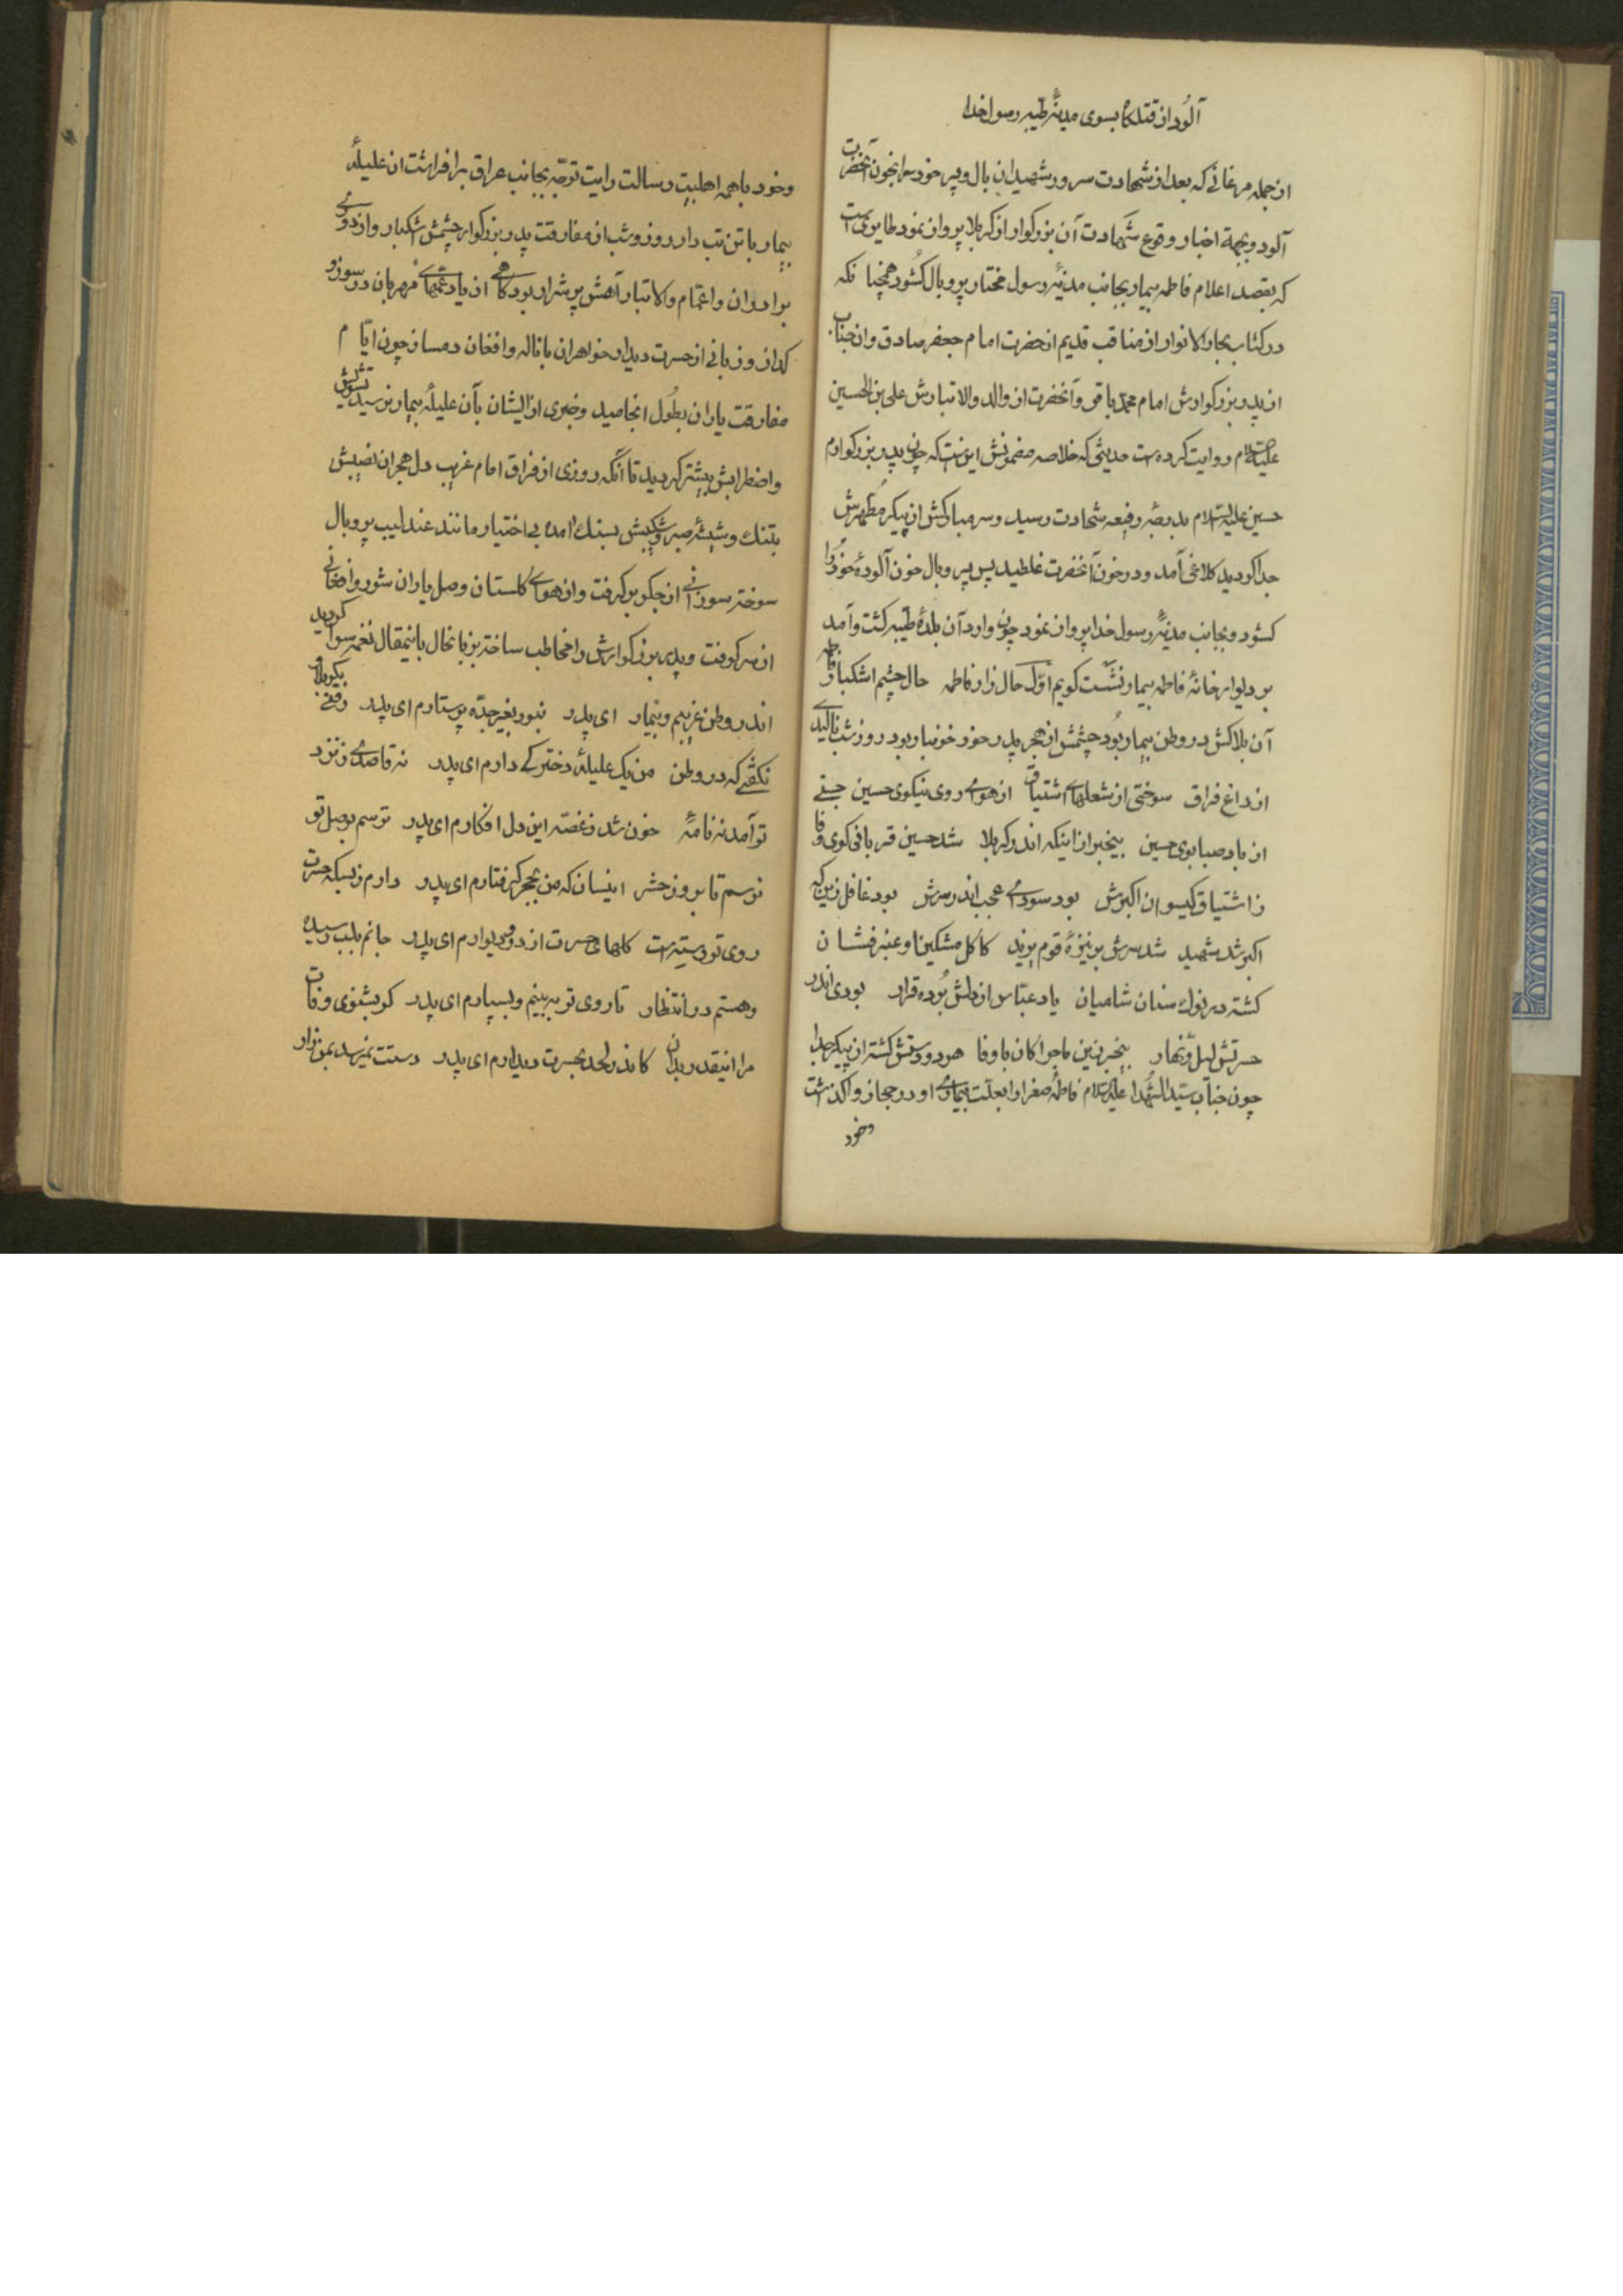 آلود از قتلگاه بسوی مدینهٔ طیبه رسول خدا
از جمله مرغانی که بعد از شهادت سرور شهیدان بال و پر خود را بخون آنحضرت
آلود و بجهة اخبار وقوع شهادت آن بزرگوار از کربلا پرواز نمود طایریست
که بقصد اعلام فاطمه بیمار بجانب مدینهٔ رسول مختار پر و بال گشود همچنانکه
در کتاب بحار الانوار از مناقب قدیم از حضرت امام جعفر صادق و از جناب
از پدر بزرگوارش امام محمد باقر و آنحضرت از والد والاتبارش علی بن الحسین
علیه السلام روایت کرده است حدیثی که خلاصه مضمونش اینست که چون پدر بزرگوارم
حسین علیه السلام بدرجهٔ رفیعه شهادت رسید و سر مبارکش از پیکر مطهرش
جدا گردید کلاغی آمد و در خون آنحضرت غلطید پس پر و بال خون آلودهٔ خود را
گشود و بجانب مدینهٔ رسول خدا پرواز نمود چون وارد آن بلدهٔ طیبه گشت و آمد
بر دیوار خانهٔ فاطمه بیمار نشست گویم اول حال زار فاطمه حال چشم اشکبار فاطمه
آن بلاکش در وطن بیمار بود چشمش از هجر پدر خود خونبار بود روز و شب نالیدی
از داغ فراق سوختی از شعلهای اشتیاق از هوای روی نیکوی حسین جستی
از باد صبا بوی حسین بیخبر از اینکه اندر کربلا شد حسین قربانی کوی وفا
ز اشتیاق گیسوان اکبرش بود سودای عجب اندر سرش بود غافل زین که
اکبر شد شهید شد سرش بر نیزهٔ قوم یزید کاکل مشکین او عنبر فشان
گشته در نوک سنان شامیان یاد عباس از دلش برده قرار بودی اندر
حسرتش لیل و نهار بیخبر زین ماجرا کان باوفا هر دو دستش گشته از پیکر جدا
چون جناب سید الشهدا علیه السلام فاطمهٔ صغرا را بعلت بیماری او در حجاز واگذاشت
و خود
و خود با همه اهلبیت رسالت رایت توجه بجانب عراق برافراشت آن علیلهٔ
بیمار با تن تب دار روز و شب از مفارقت پدر بزرگوار چشمش اشکبار و از دوری
برادران و اعمام والاتبار آهش پر شرار بود گاهی از یاد عمهای مهربان در سوز و
گداز و زمانی از حسرت دیدار خواهران با ناله و افغان دمساز چون ایام
مفارقت یاران بطول انجامید و خبری از ایشان بآن علیلهٔ بیمار نرسید تشویش
و اضطرابش بیشتر گردید تا آنکه روزی از فراق امام غریب دل هجران نصیبش
بتنگ و شیشهٔ صبر و شکیبش بسنگ آمده بی اختیار مانند عندلیب پر و بال
سوخته سوزانی از جگر برگرفت و از هوای گلستان وصل یاران شور و افغانی
از سر گرفت و پدر بزرگوارش را مخاطب ساخته بزبانحال باینمقال نغمه سرا گردید
اندر وطن غریبم و بیمار ای پدر نبود بغیر جدّه پرستارم ای پدر رفتی بکربلا
نگفتی که در وطن من یک علیلهٔ دخترکی دارم ای پدر نه قاصدی ز نزد
تو آمد نه نامهٔ خون شد ز غصه این دل افکارم ای پدر ترسم بوصل تو
نرسم تا بروز حشر اینسان که من بهجر گرفتارم ای پدر دارم ز بسکه حسرت
روی تو رسته است گلهای حسرت از در و دیوارم ای پدر جانم بلب رسیده
و هستم در انتظار تا روی تو ببینم و بسپارم ای پدر گر بشنوی وفات
مرا اینقدر بدان کاندر لحد بحسرت دیدارم ای پدر دستت نمیرسد بمن زار